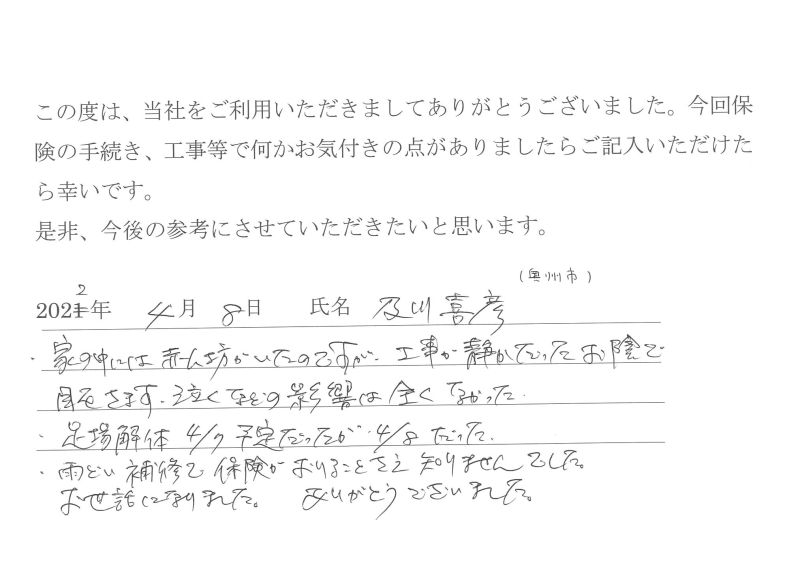 この度は、当社をご利用いただきましてありがとうございました。今回保
険の手続き、工事等で何かお気付きの点がありましたらご記入いただけた
ら幸いです。
是非、今後の参考にさせていただきたいと思います。
(奥州市)
2022年 4月 8日 氏名 及川喜彦
・家の中には赤ん坊がいたのですが、工事が静かだったお陰で
目をさます、泣くなどの影響は全くなかった。
・足場解体 4/7 予定だったが、4/8 だった。
・雨どい補修で保険がおりることさえ知りませんでした。
お世話になりました。 ありがとうございました。